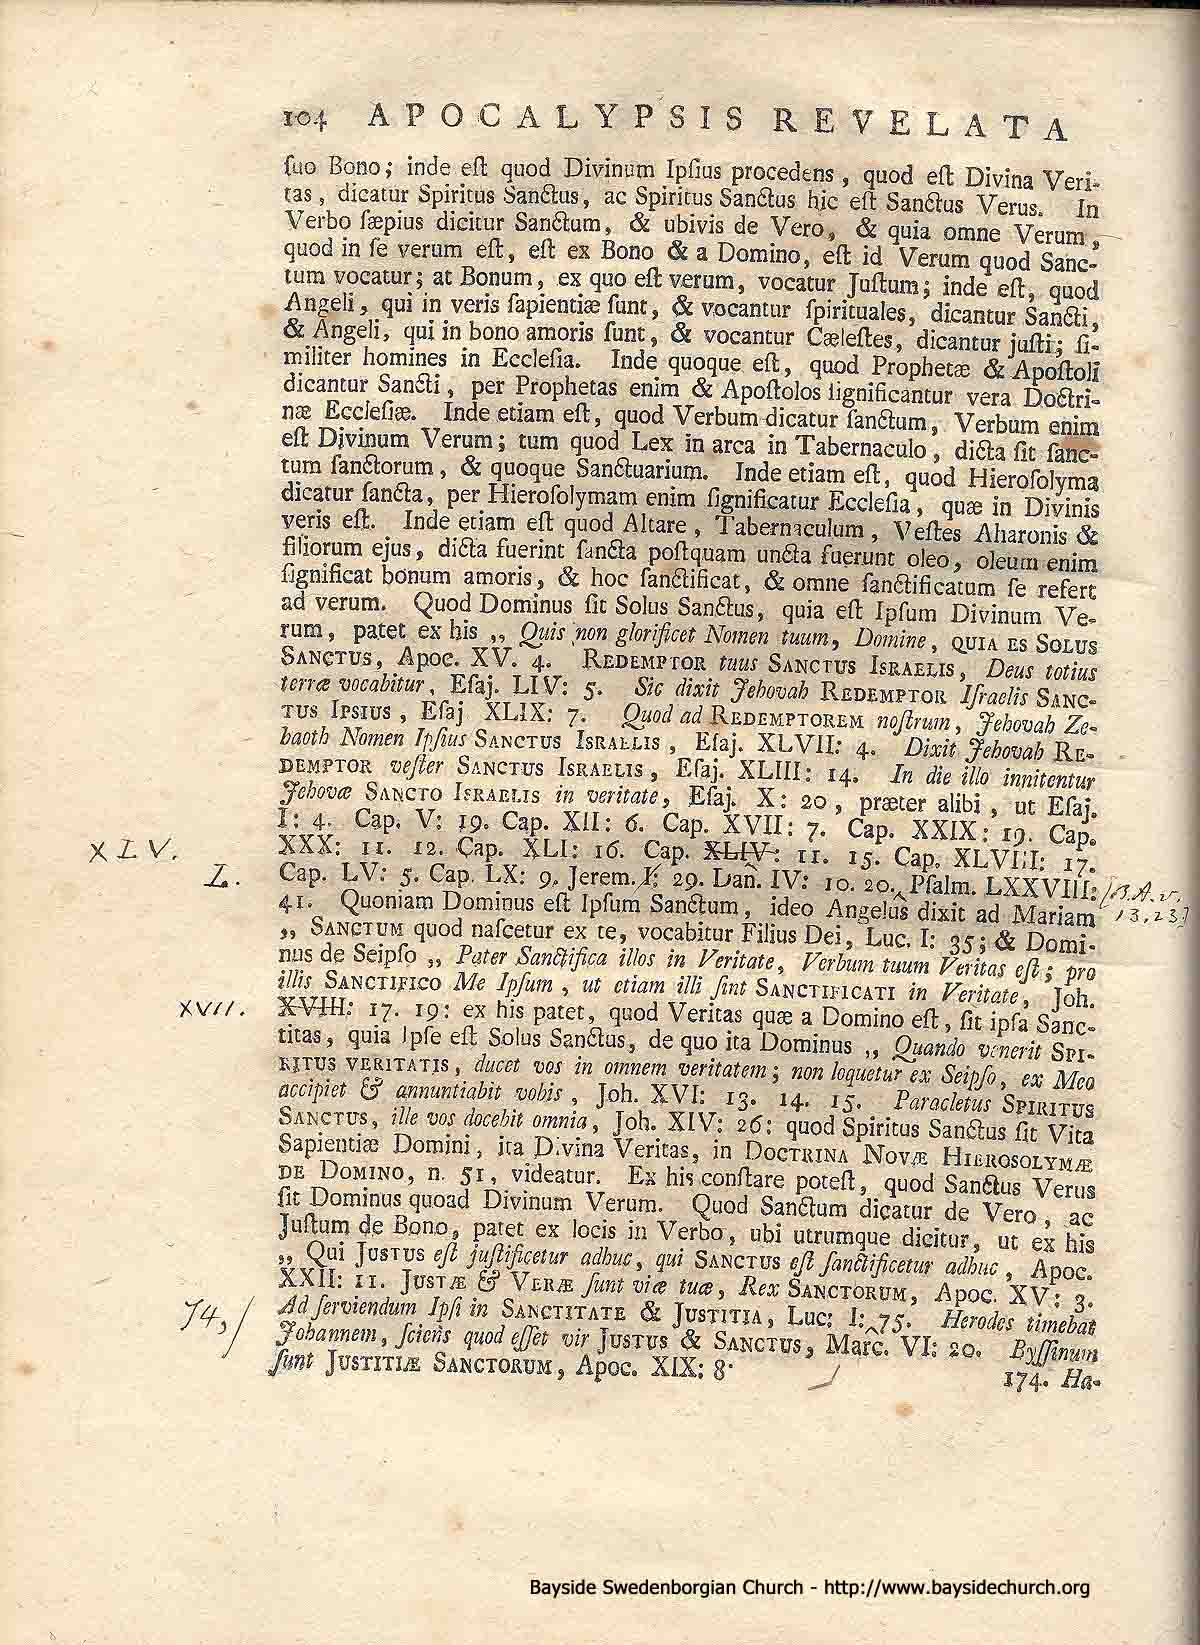 104 APOCALYPSIS REVELATA
ſuo Bono; inde eſt quod Divinum Ipſius procedens, quod eſt Divina Veri-
tas, dicatur Spiritus Sanctus, ac Spiritus Sanctus hic eſt Sanctus Verus. In
Verbo ſæpius dicitur Sanctum, & ubivis de Vero, & quia omne Verum,
quod in ſe verum eſt, eſt ex Bono & a Domino, eſt id Verum quod Sanc-
tum vocatur; at Bonum, ex quo eſt verum, vocatur Juſtum; inde eſt, quod
Angeli, qui in veris ſapientiæ ſunt, & vocantur ſpirituales, dicantur Sancti,
& Angeli, qui in bono amoris ſunt, & vocantur Cæleſtes, dicantur juſti; ſi-
militer homines in Eccleſia. Inde quoque eſt, quod Prophetæ & Apoſtoli
dicantur Sancti, per Prophetas enim & Apoſtolos ſignificantur vera Doctri-
næ Eccleſiæ. Inde etiam eſt, quod Verbum dicatur ſanctum, Verbum enim
eſt Divinum Verum; tum quod Lex in arca in Tabernaculo, dicta ſit ſanc-
tum ſanctorum, & quoque Sanctuarium. Inde etiam eſt, quod Hieroſolyma
dicatur ſancta, per Hieroſolymam enim ſignificatur Eccleſia, quæ in Divinis
veris eſt. Inde etiam eſt quod Altare, Tabernaculum, Veſtes Aharonis &
filiorum ejus, dicta fuerint ſancta poſtquam uncta fuerunt oleo, oleum enim
ſignificat bonum amoris, & hoc ſanctificat, & omne ſanctificatum ſe refert
ad verum. Quod Dominus ſit Solus Sanctus, quia eſt Ipſum Divinum Ve-
rum, patet ex his „ Quis non glorificet Nomen tuum, Domine, QUIA ES SOLUS
SANCTUS, Apoc. XV. 4. REDEMPTOR tuus SANCTUS ISRAELIS, Deus totius
terræ vocabitur, Eſaj. LIV: 5. Sic dixit Jehovah REDEMPTOR Iſraelis SANC-
TUS IPSIUS, Eſaj XLIX: 7. Quod ad REDEMPTOREM noſtrum, Jehovah Ze-
baoth Nomen Ipſius SANCTUS ISRAELIS, Eſaj. XLVII: 4. Dixit Jehovah RE-
DEMPTOR veſter SANCTUS ISRAELIS, Eſaj. XLIII: 14. In die illo innitentur
Jehovæ SANCTO ISRAELIS in veritate, Eſaj. X: 20, præter alibi, ut Eſaj.
I: 4. Cap. V: 19. Cap. XII: 6. Cap. XVII: 7. Cap. XXIX: 19. Cap.
XLV. XXX: 11. 12. Cap. XLI: 16. Cap. XLIV: 11. 15. Cap. XLVIII: 17.
L. Cap. LV: 5. Cap. LX: 9. Jerem. I: 29. Dan. IV: 10. 20. Pſalm. LXXVIII:
41. Quoniam Dominus eſt Ipſum Sanctum, ideo Angelus dixit ad Mariam 13,23]
„ SANCTUM quod naſcetur ex te, vocabitur Filius Dei, Luc. I: 35; & Domi-
nus de Seipſo „ Pater Sanctifica illos in Veritate, Verbum tuum Veritas eſt; pro
illis SANCTIFICO Me Ipſum, ut etiam illi ſint SANCTIFICATI in Veritate, Joh.
XVII. XVIII: 17. 19: ex his patet, quod Veritas quæ a Domino eſt, ſit ipſa Sanc-
titas, quia Ipſe eſt Solus Sanctus, de quo ita Dominus „ Quando venerit SPI-
RITUS VERITATIS, ducet vos in omnem veritatem; non loquetur ex Seipſo, ex Meo
accipiet & annuntiabit vobis, Joh. XVI: 13. 14. 15. Paracletus SPIRITUS
SANCTUS, ille vos docebit omnia, Joh. XIV: 26: quod Spiritus Sanctus ſit Vita
Sapientiæ Domini, ita Divina Veritas, in DOCTRINA NOVÆ HIEROSOLYMÆ
DE DOMINO, n. 51, videatur. Ex his conſtare poteſt, quod Sanctus Verus
ſit Dominus quoad Divinum Verum. Quod Sanctum dicatur de Vero, ac
Juſtum de Bono, patet ex locis in Verbo, ubi utrumque dicitur, ut ex his
„ Qui JUSTUS eſt juſtificetur adhuc, qui SANCTUS eſt ſanctificetur adhuc, Apoc.
XXII: 11. JUSTÆ & VERÆ ſunt viæ tuæ, Rex SANCTORUM, Apoc. XV: 3.
74, Ad ſerviendum Ipſi in SANCTITATE & JUSTITIA, Luc: I: 75. Herodes timebat
Johannem, ſciens quod eſſet vir JUSTUS & SANCTUS, Marc. VI: 20. Byſſinum
ſunt JUSTITIÆ SANCTORUM, Apoc. XIX: 8.
174. Ha-
Bayside Swedenborgian Church - http://www.baysidechurch.org